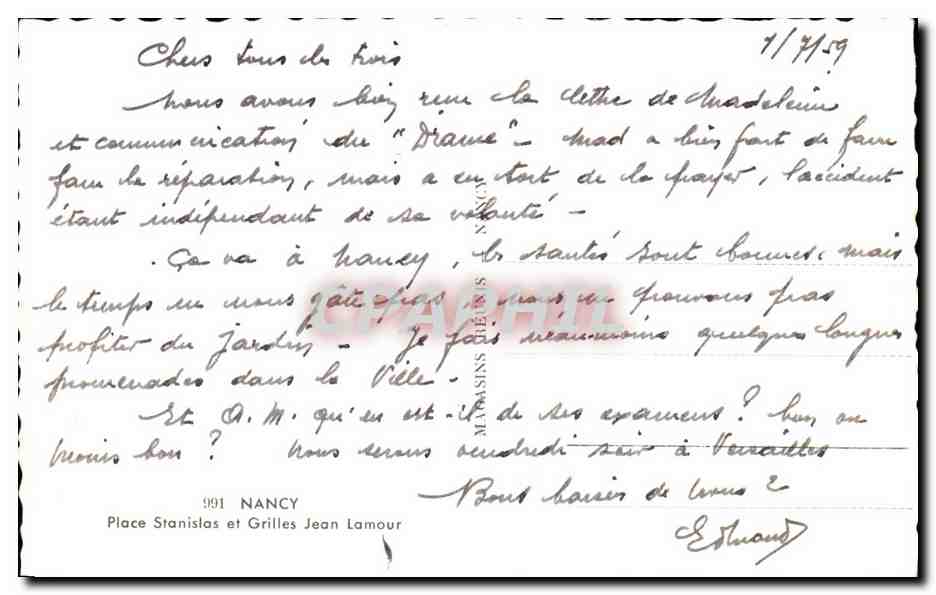 1/7/59
Chers tous les trois
Nous avons bien reçu la lettre de Madeleine
et communication du "Drame" - Mad a bien fait de faire
faire la réparation, mais a eu tort de la payer, l'accident
étant indépendant de sa volonté -
Ça va à Nancy, les santés sont bonnes, mais
le temps ne nous gâte pas, nous ne pouvons pas
profiter du Jardin - Je fais néanmoins quelques longues
promenades dans la Ville -
Et A.M. qu'en est-il de ses examens? bon ou
moins bon? Nous serons vendredi soir à Versailles
Bons baisers de nous 2
Edmond
991 NANCY
Place Stanislas et Grilles Jean Lamour
MAGASINS RÉUNIS NANCY
CPAPHIL